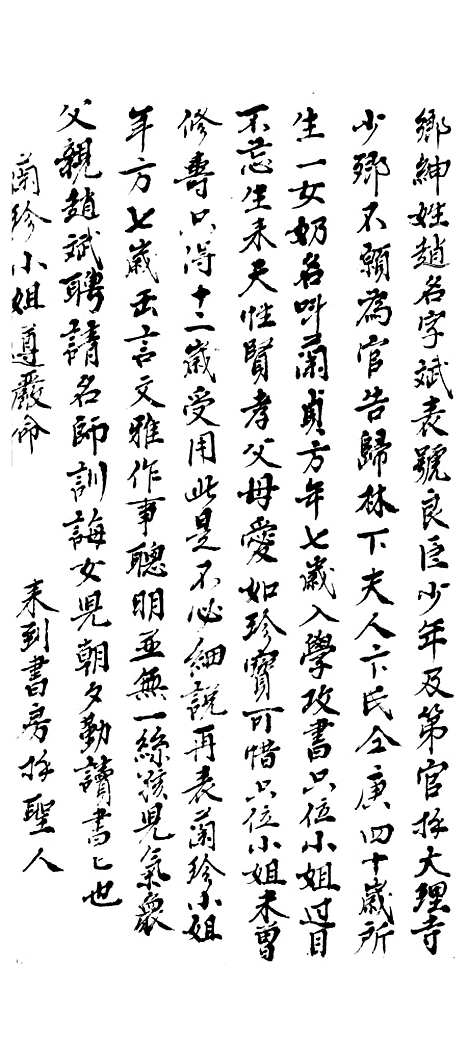 鄉紳姓趙名字斌表號良臣少年及第官拜大理寺
少卿不願為官告歸林下夫人卞氏仝庚四十歲所
生一女奶名呌蘭貞方年七歲入學攻書只位小姐过目
不忘生来天性賢孝父母愛如珍寳可惜只位小姐未曾
修壽只得十二歲受用此是不必細說再表蘭珍小姐
年方七歲出言文雅作事聰明並無一絲孩兒氣象
父親趙斌聘請名師訓誨女兒朝夕勤讀書匕也
蘭珍小姐遵嚴命 来到書房拜聖人